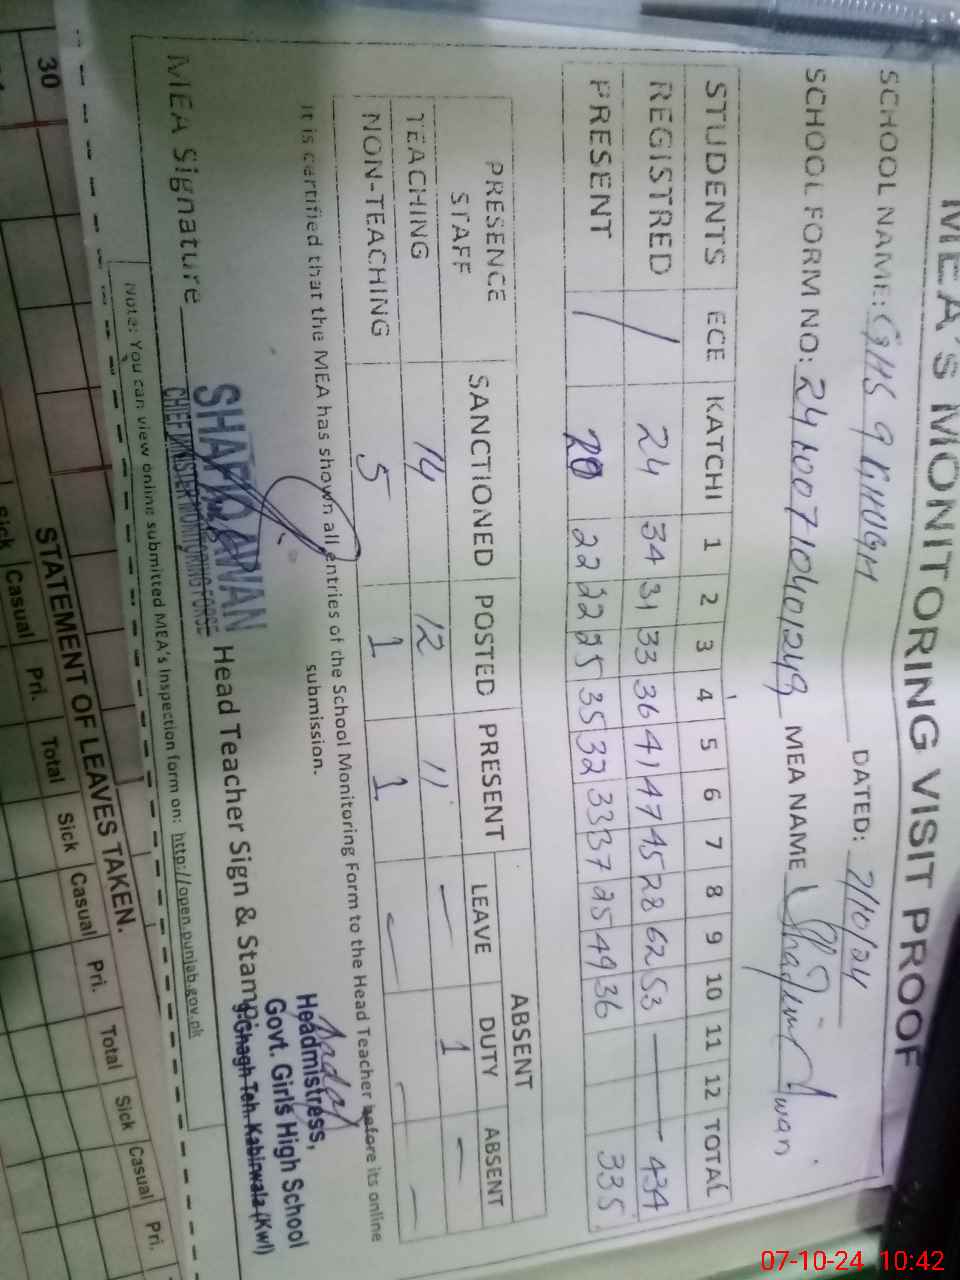 MEA'S MONITORING VISIT PROOF
SCHOOL NAME: GHS 9 GHUGH DATED: 7/10/24
SCHOOL FORM NO: MEA NAME Shafiq Awan
STUDENTS ECE KATCHI 1 2 3 4 5 6 7 8 9 10 11 12 TOTAL
REGISTRED / 24 34 31 33 36 41 47 45 28 62 53 — 434
PRESENT 20 22 22 25 35 32 33 37 25 49 36 335
PRESENCE STAFF SANCTIONED POSTED PRESENT ABSENT
LEAVE DUTY ABSENT
TEACHING 14 12 11 — 1 —
NON-TEACHING 5 1 1 — — —
It is certified that the MEA has shown all entries of the School Monitoring Form to the Head Teacher before its online
submission.
MEA Signature Head Teacher Sign & Stamp
SHAFIQ AWAN
CHIEF MINISTER MONITORING FORCE
Headmistress,
Govt. Girls High School
9-Ghagh Teh. Kabirwala (Kwl)
Note: You can view online submitted MEA's Inspection form on: http://open.punjab.gov.pk
30
STATEMENT OF LEAVES TAKEN.
Sick Casual Pri. Total Sick Casual Pri. Total Sick Casual Pri.
07-10-24 10:42